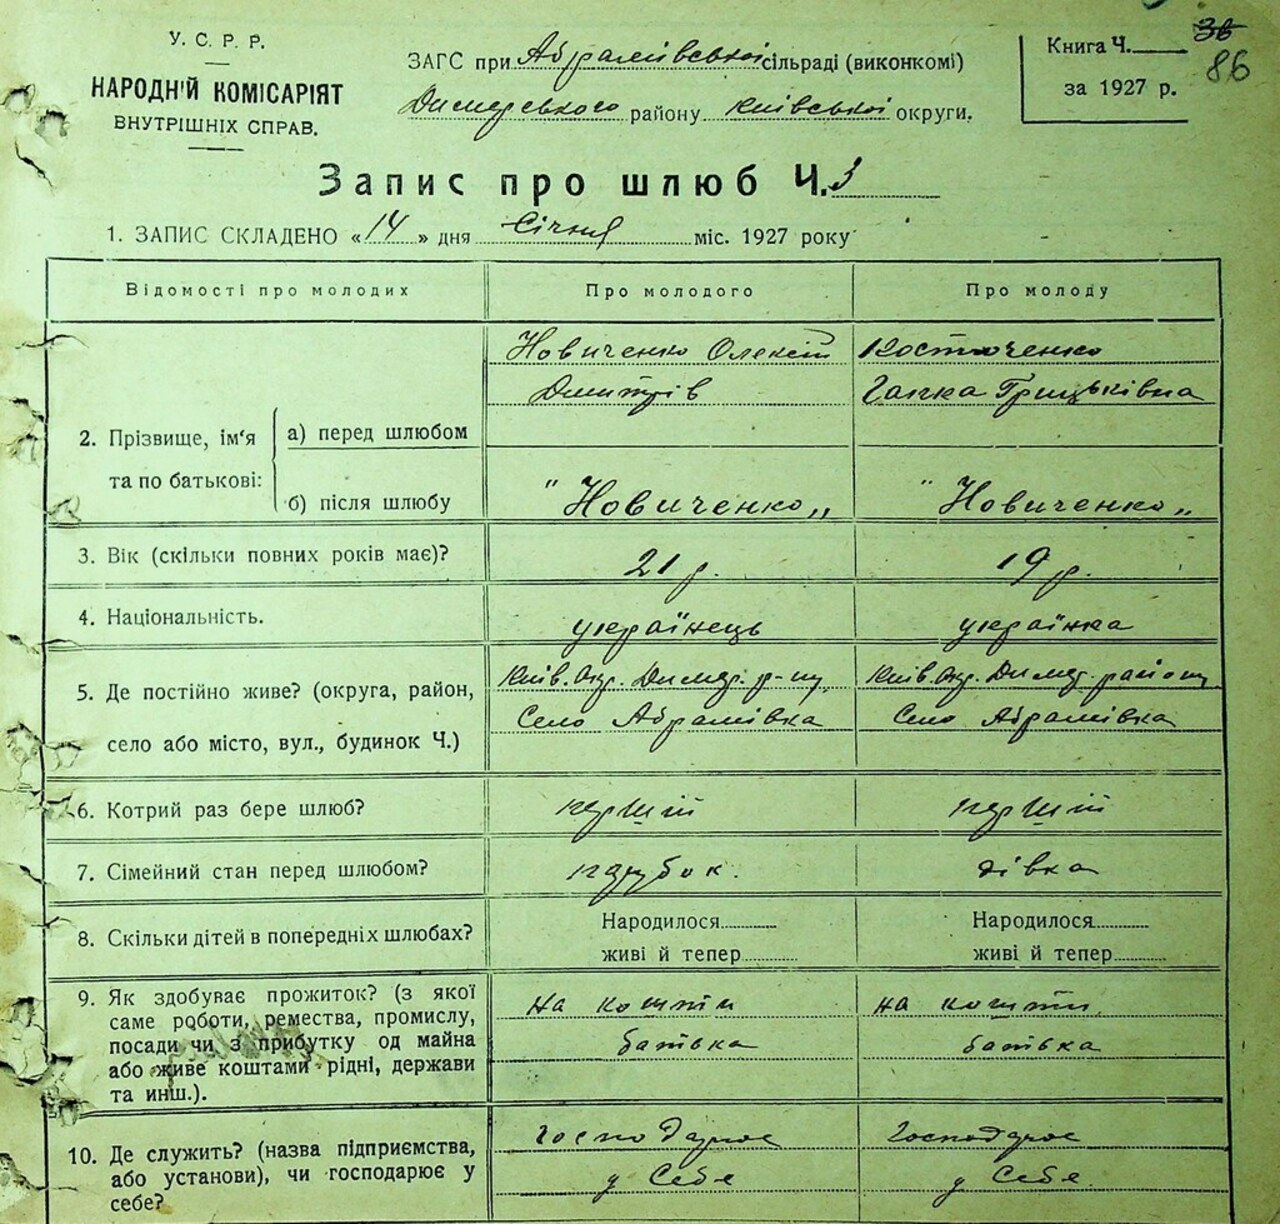 У. С. Р. Р.
НАРОДНІЙ КОМІСАРІЯТ
ВНУТРІШНІХ СПРАВ.
ЗАГС при Абрамівській сільраді (виконкомі)
Димерського району Київської округи.
Книга Ч.
за 1927 р.
36
86
Запис про шлюб Ч. 3
1. ЗАПИС СКЛАДЕНО « 14 » дня Січня міс. 1927 року
Відомості про молодих
Про молодого
Про молоду
2. Прізвище, ім'я та по батькові:
а) перед шлюбом
Новиченко Олексій
Дмитрів
Костюченко
Гапка Грицьківна
б) після шлюбу
" Новиченко „
" Новиченко „
3. Вік (скільки повних років має)?
21 р.
19 р.
4. Національність.
українець
українка
5. Де постійно живе? (округа, район,
село або місто, вул., будинок Ч.)
Київ. Окр. Димер. р-ну
Село Абрамівка
Київ. Окр. Димер. району
Село Абрамівка
6. Котрий раз бере шлюб?
перший
перший
7. Сімейний стан перед шлюбом?
парубок.
дівка
8. Скільки дітей в попередніх шлюбах?
Народилося
живі й тепер
Народилося
живі й тепер
9. Як здобуває прожиток? (з якої
саме роботи, ремества, промислу,
посади чи з прибутку од майна
або живе коштами рідні, держави
та инш.).
на кошти
батька
на кошти
батька
10. Де служить? (назва підприємства,
або установи), чи господарює у
себе?
Господарює
у Себе
Господарює
у Себе